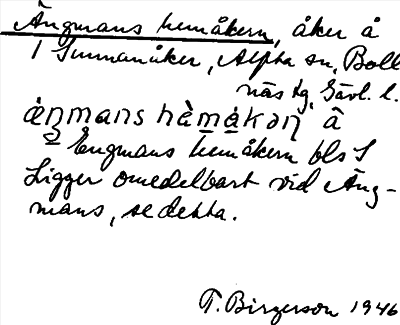 Ängmans hemåkern, åker å
1 Sunnanåker, Alpha sn, Boll
näs tg, Gävl. l.
áŋmans hàmakəṇ å
2 Engmans hemåkern bls 1
Ligger omedelbart vid Äng-
mans, se detta.
T. Birgerson 1946